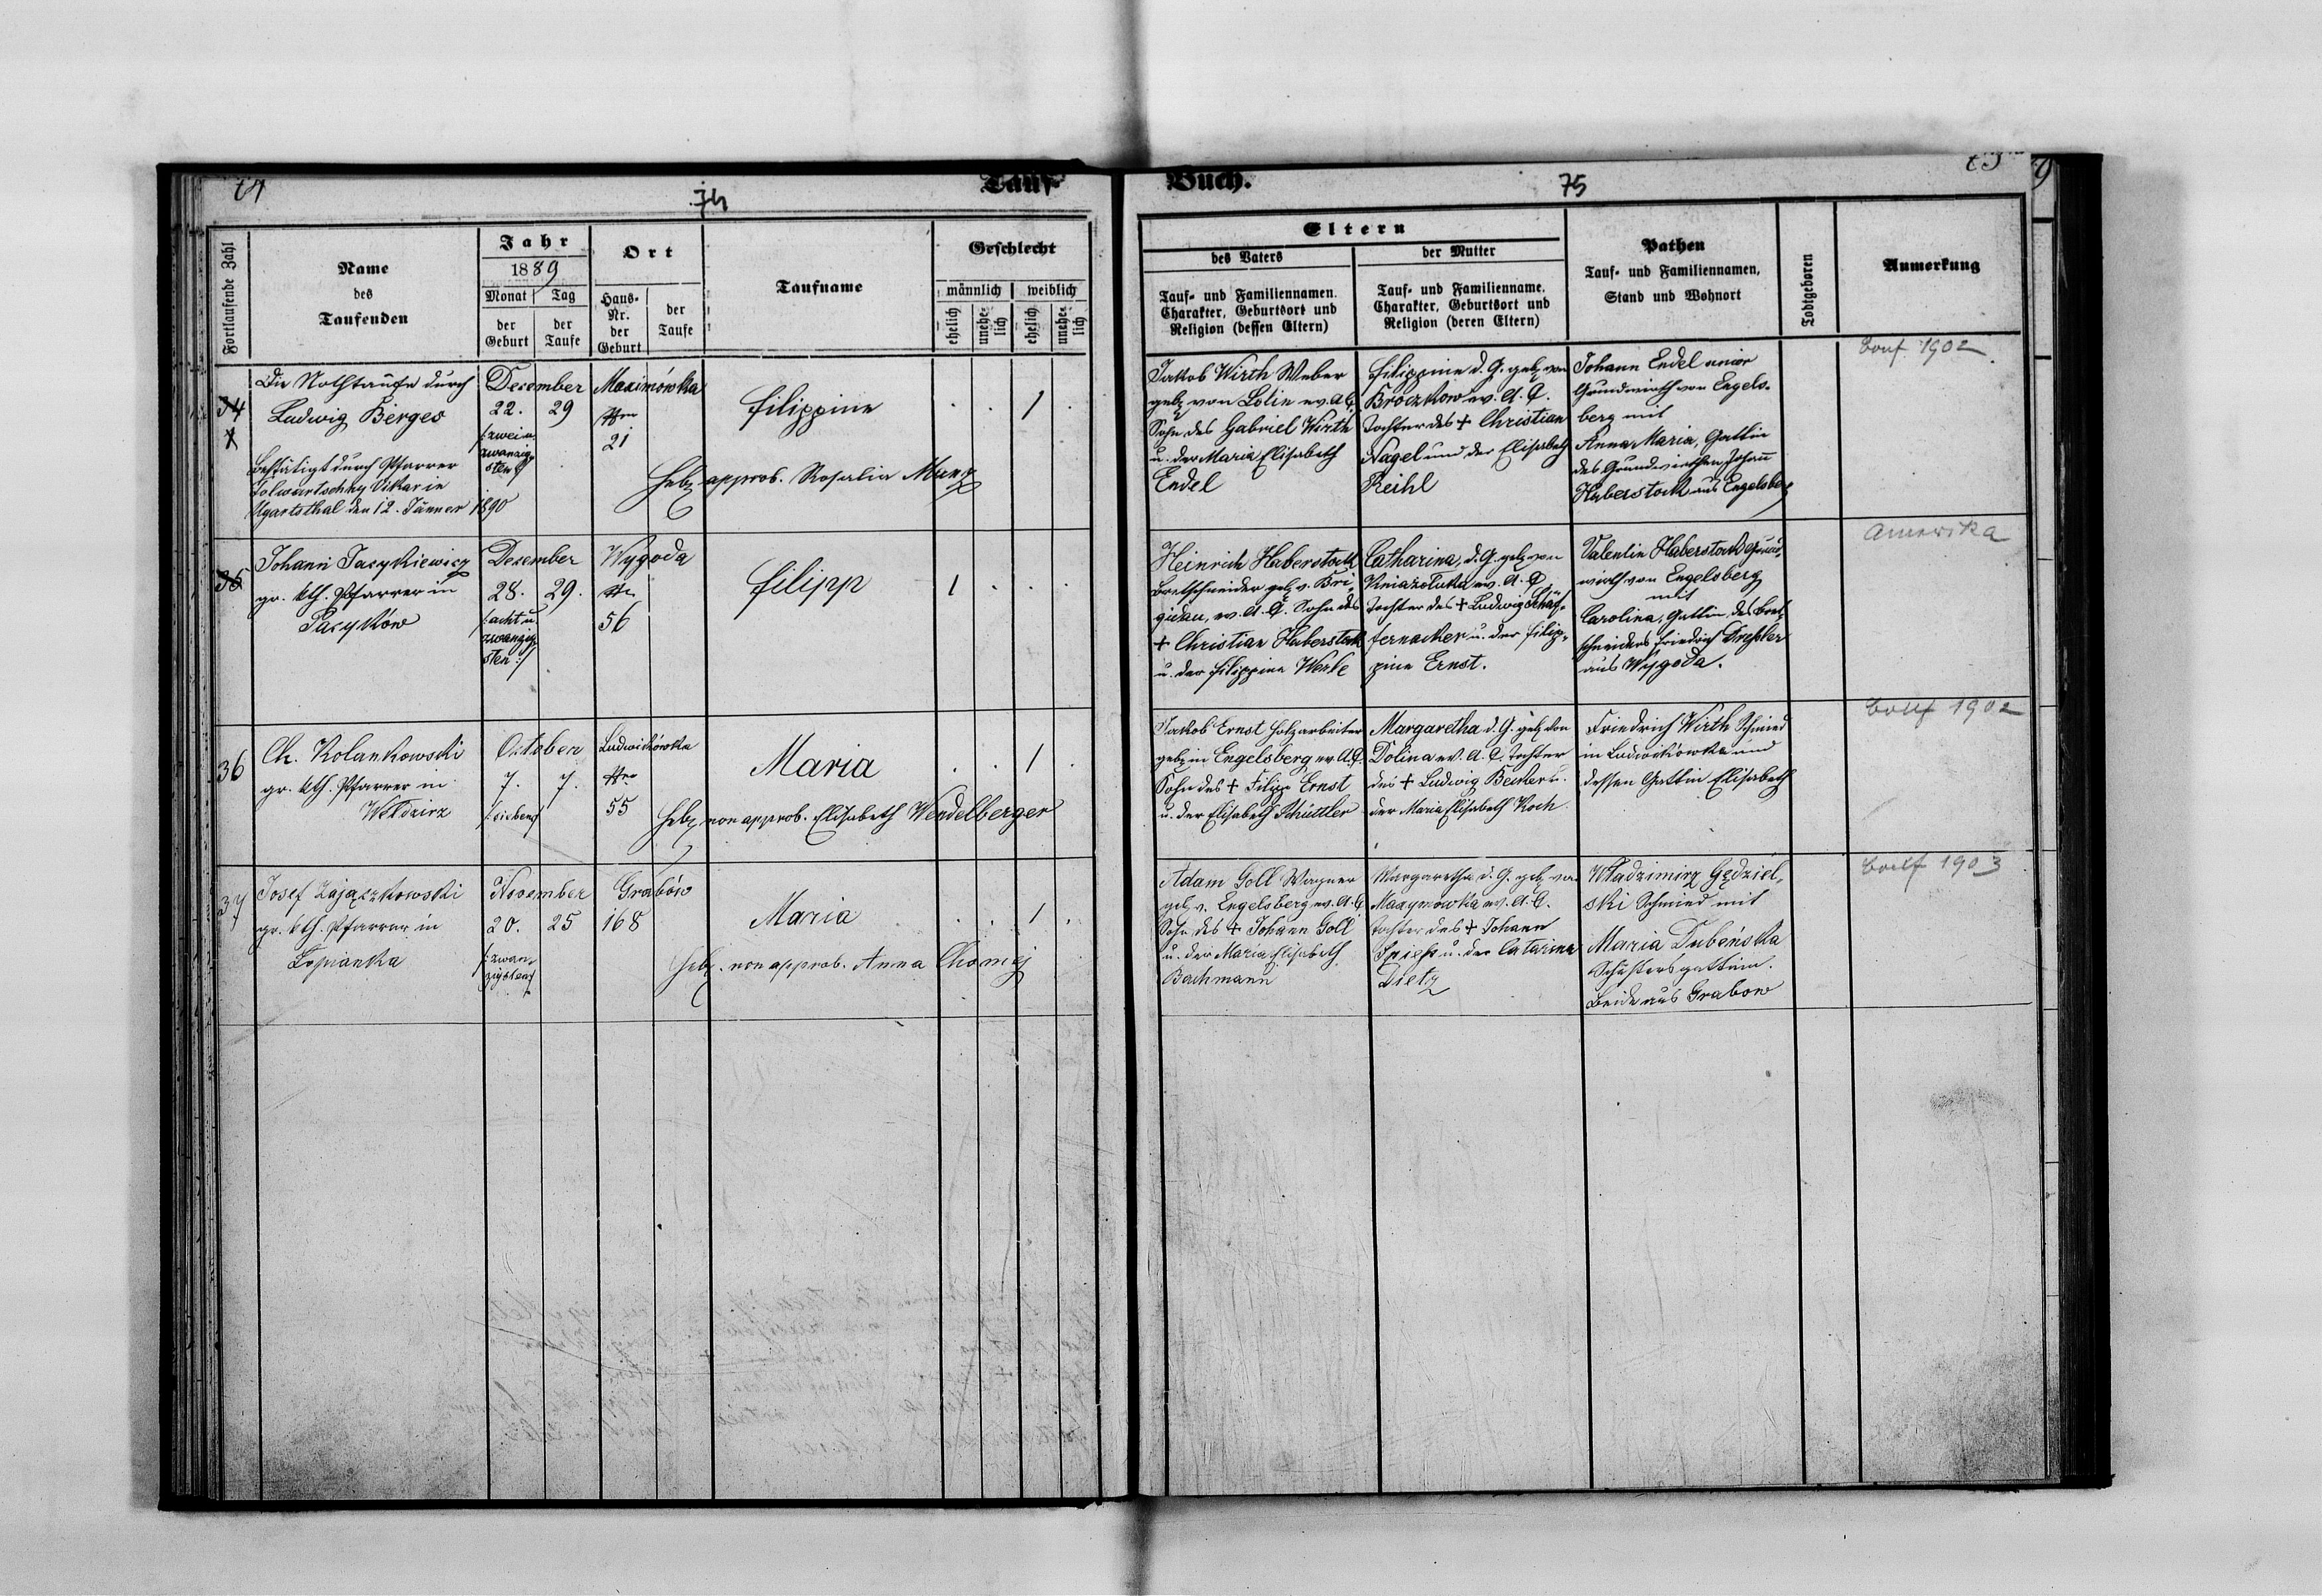 74
Tauf-
Fortlaufende Zahl
Name
des
Taufenden
Jahr
1889
Monat
Tag
der
Geburt
der
Taufe
Ort
Haus-
Nr.
der
Geburt
der
Taufe
Taufname
Geschlecht
männlich
weiblich
ehelich
unehe-
lich
ehelich
unehe-
lich
34
Die Nothtaufe durch
Ludwig Berges
bestätigt durch Pfarrer
Vikar in
Ugartsthal den 12. Jänner 1890
December
22. 29
/:zwei u.
zwanzig-
sten:/
Maximówka
Nro
21
Filippine
. . 1 .
Heb. approb. Rosalia Munz
35
Johann Pacykiewicz
gr. kth. Pfarrer in
Pacyków
Desember
28. 29.
/:acht u.
zwanzig-
sten:/
Wygoda
Nro
56
Filipp
1 . . .
36
Ch. Kolankowski
gr. kth. Pfarrer in
Weldzirz
October
7. 7.
/:sieben:/
Ludwikówka
Nro
55
Maria
. . 1 .
Heb. non approb. Elisabeth Wendelberger
37
Josef Zajączkowski
gr. kth. Pfarrer in
Lopianka
November
20. 25
/:zwan-
zigsten:/
Grabów
168
Maria
. . 1 .
Heb. non approb. Anna Chomij
Buch.
75
Eltern
des Vaters
Tauf- und Familiennamen.
Charakter, Geburtsort und
Religion (dessen Eltern)
der Mutter
Tauf- und Familienname.
Charakter, Geburtsort und
Religion (deren Eltern)
Pathen
Tauf- und Familiennamen,
Stand und Wohnort
Todtgeboren
Anmerkung
Jakob Wirth Weber
geb. von Lolin ev. A. C.
Sohn des Gabriel Wirth
u. der Maria Elisabeth
Endel
Filippine d. G. geb. von
Broczkow ev. A. C.
Tochter des + Christian
Nagel und der Elisabeth
Reihl
Johann Endel
Grundwirth von Engels-
berg mit
Anna Maria, Gattin
des Grundwirthen Johann
Haberstock aus Engelsberg
Conf. 1902
Heinrich Haberstock
Bretschneider geb. v. Bri-
gidau, ev. A. C. Sohn des
+ Christian Haberstock
u. der Filippine Werle
Catharina, d. G. geb. von
Kniazoluka ev. A. C.
Tochter des + Ludwig Schäf-
fernacker u. der Filip-
pine Ernst.
Valentin Haberstock Grund-
wirth von Engelsberg
mit
Carolina, Gattin des Bret-
schneiders Friedrich Dreßler
aus Wygoda.
Amerika
Jakob Ernst Holzarbeiter
geb. in Engelsberg ev. A. C.
Sohn des + Filipp Ernst
u. der Elisabeth Schüttler
Margaretha d. G. geb. von
Dolina ev. A. C. Tochter
des + Ludwig Becker u.
der Maria Elisabeth Koch
Friedrich Wirth Schmied
in Ludwikowka und
dessen Gattin Elisabeth
Conf 1902
Adam Goll Wagner
geb. v. Engelsberg ev. A. C.
Sohn des + Johann Goll
u. der Maria Elisabeth
Bachmann
Margaretha d. G. geb. von
Maxymowka ev. A. C.
Tochter des + Johann
Spiess u. der Catarina
Dietz
Wladzimirz Gędziel-
ski Schmied mit
Maria Dubeńska
Schusters gattin.
Beide aus Grabow
Conf 1903